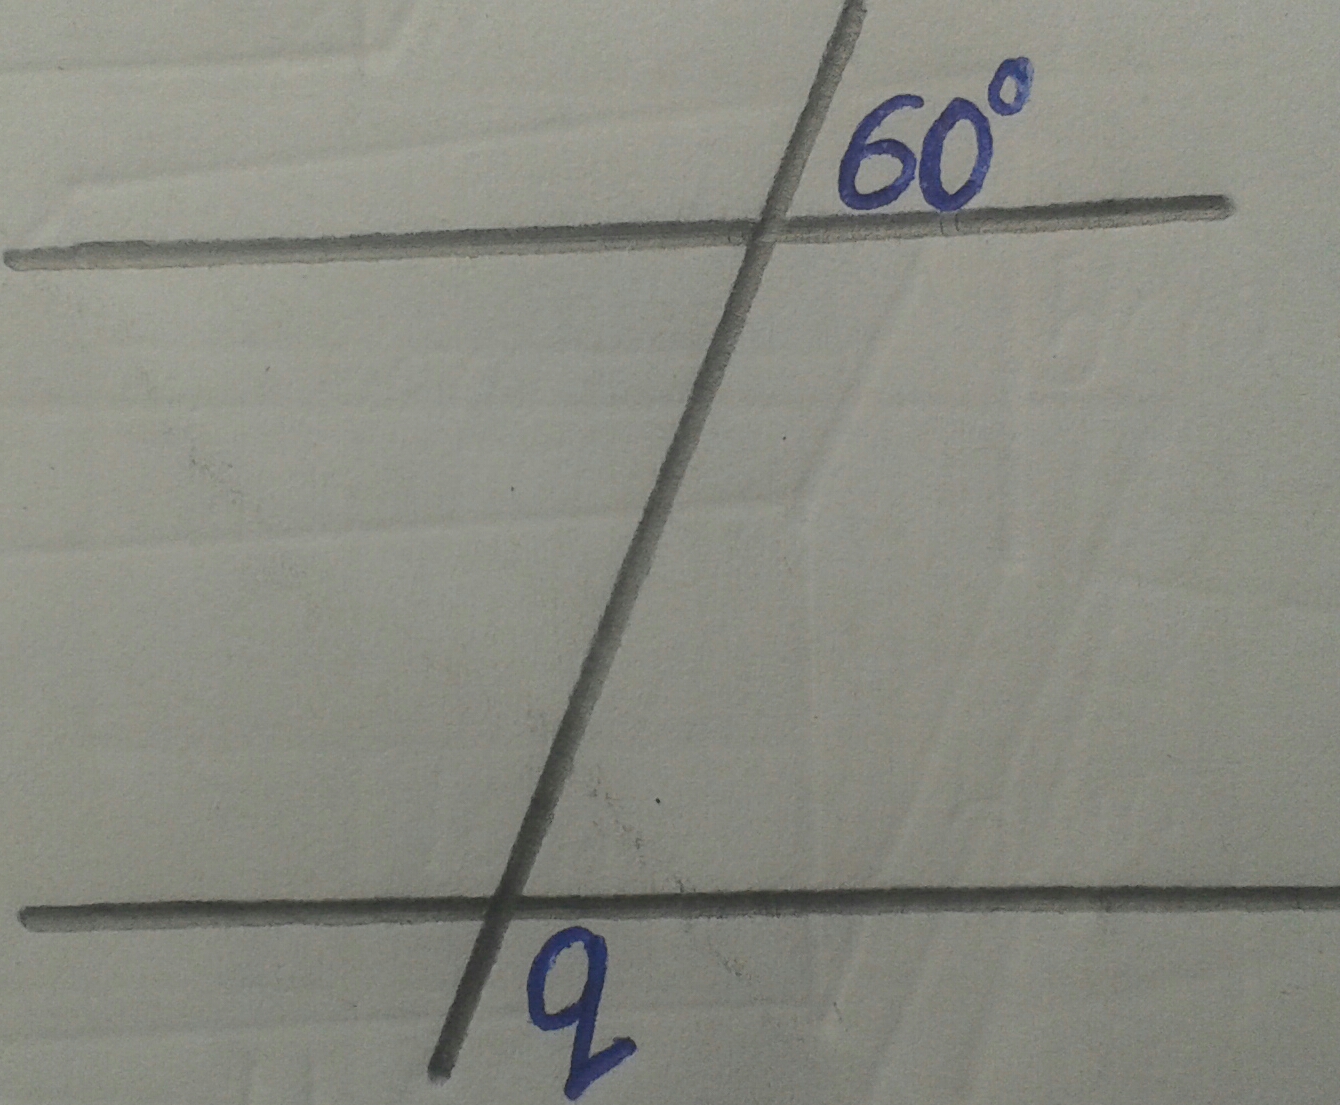 60°
q